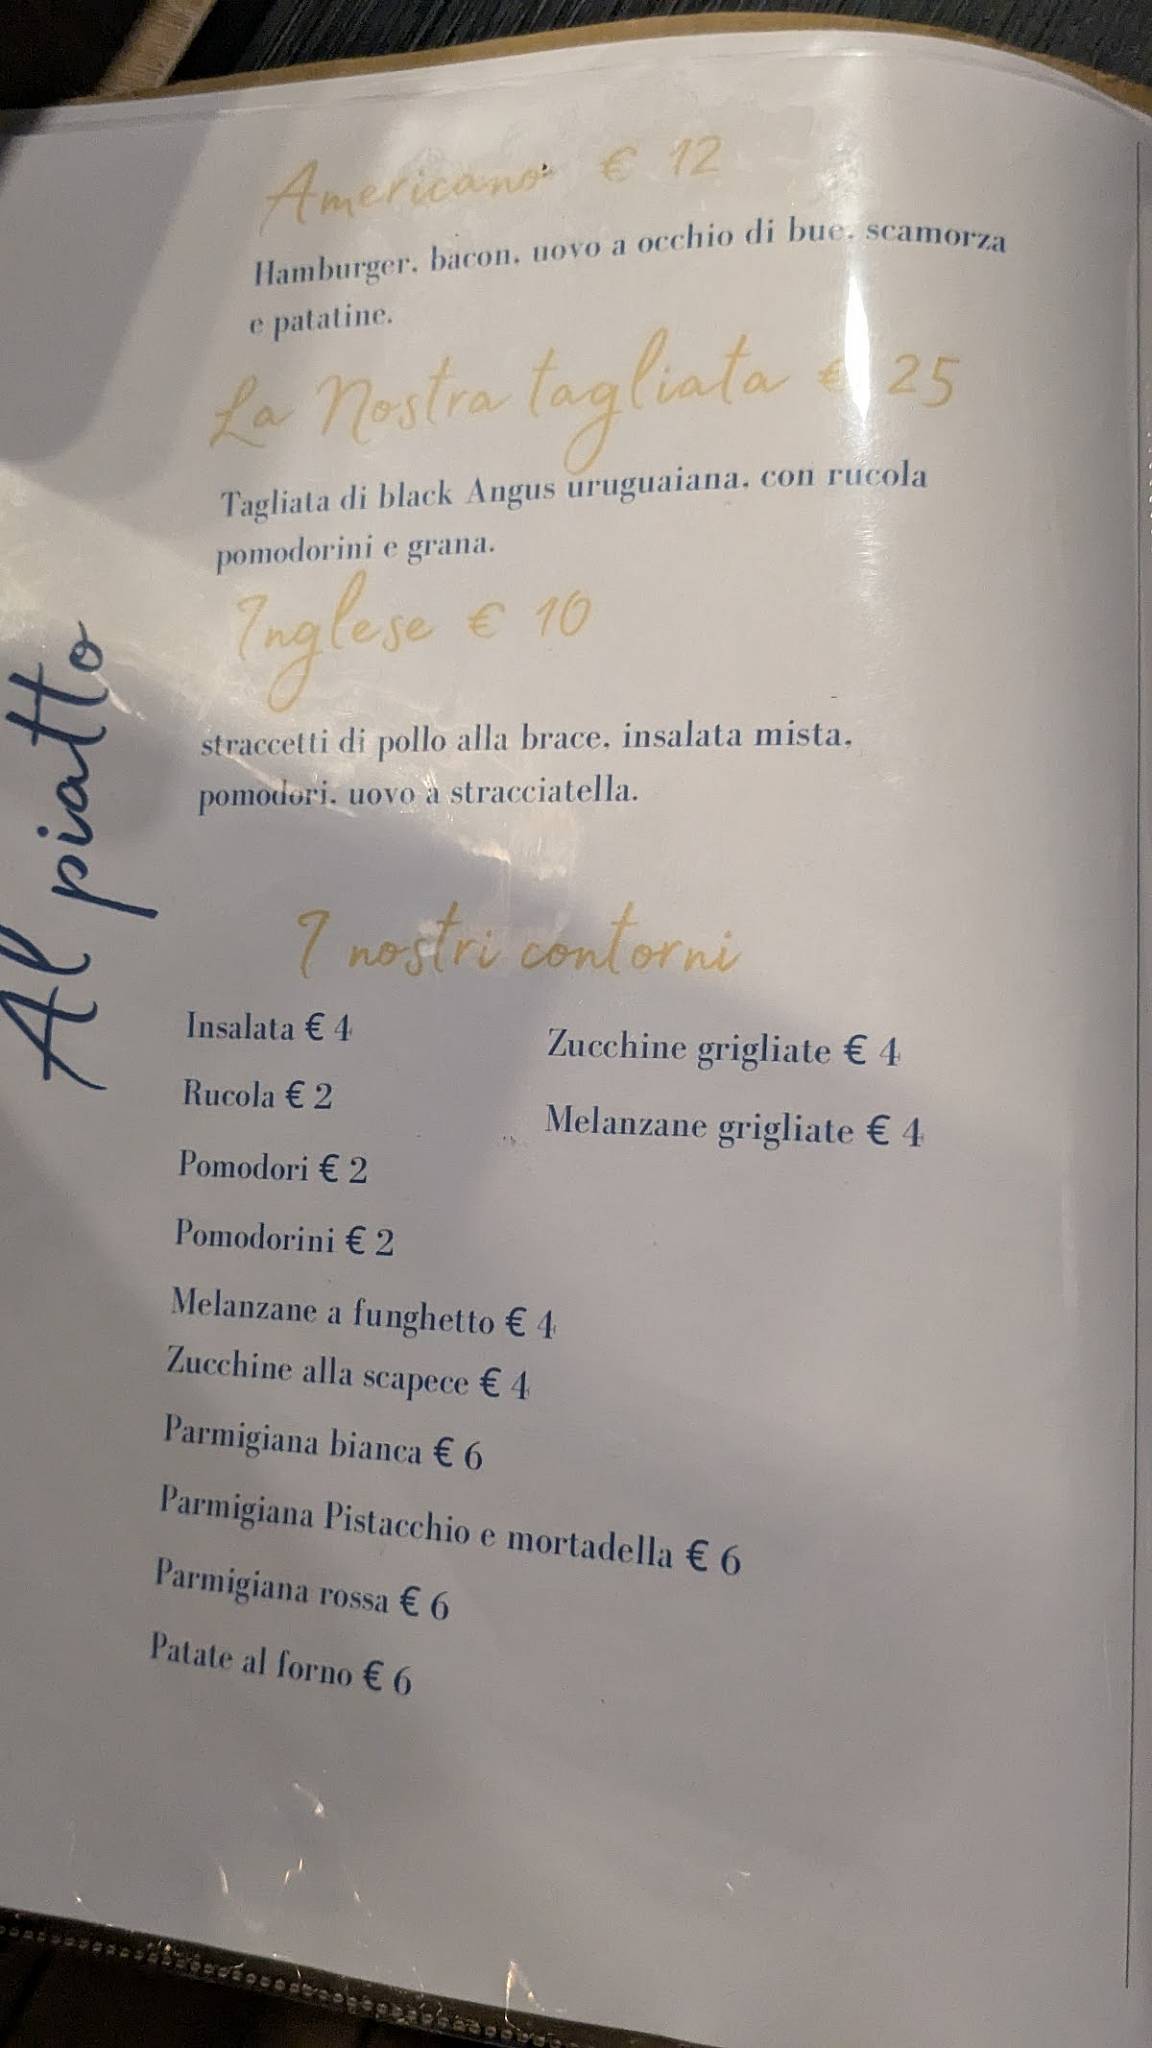 Al piatto
Americano € 12
Hamburger, bacon, uovo a occhio di bue, scamorza
e patatine.
La Nostra tagliata € 25
Tagliata di black Angus uruguaiana, con rucola
pomodorini e grana.
Inglese € 10
straccetti di pollo alla brace, insalata mista,
pomodori, uovo a stracciatella.
I nostri contorni
Insalata € 4
Rucola € 2
Pomodori € 2
Pomodorini € 2
Melanzane a funghetto € 4
Zucchine alla scapece € 4
Parmigiana bianca € 6
Parmigiana Pistacchio e mortadella € 6
Parmigiana rossa € 6
Patate al forno € 6
Zucchine grigliate € 4
Melanzane grigliate € 4